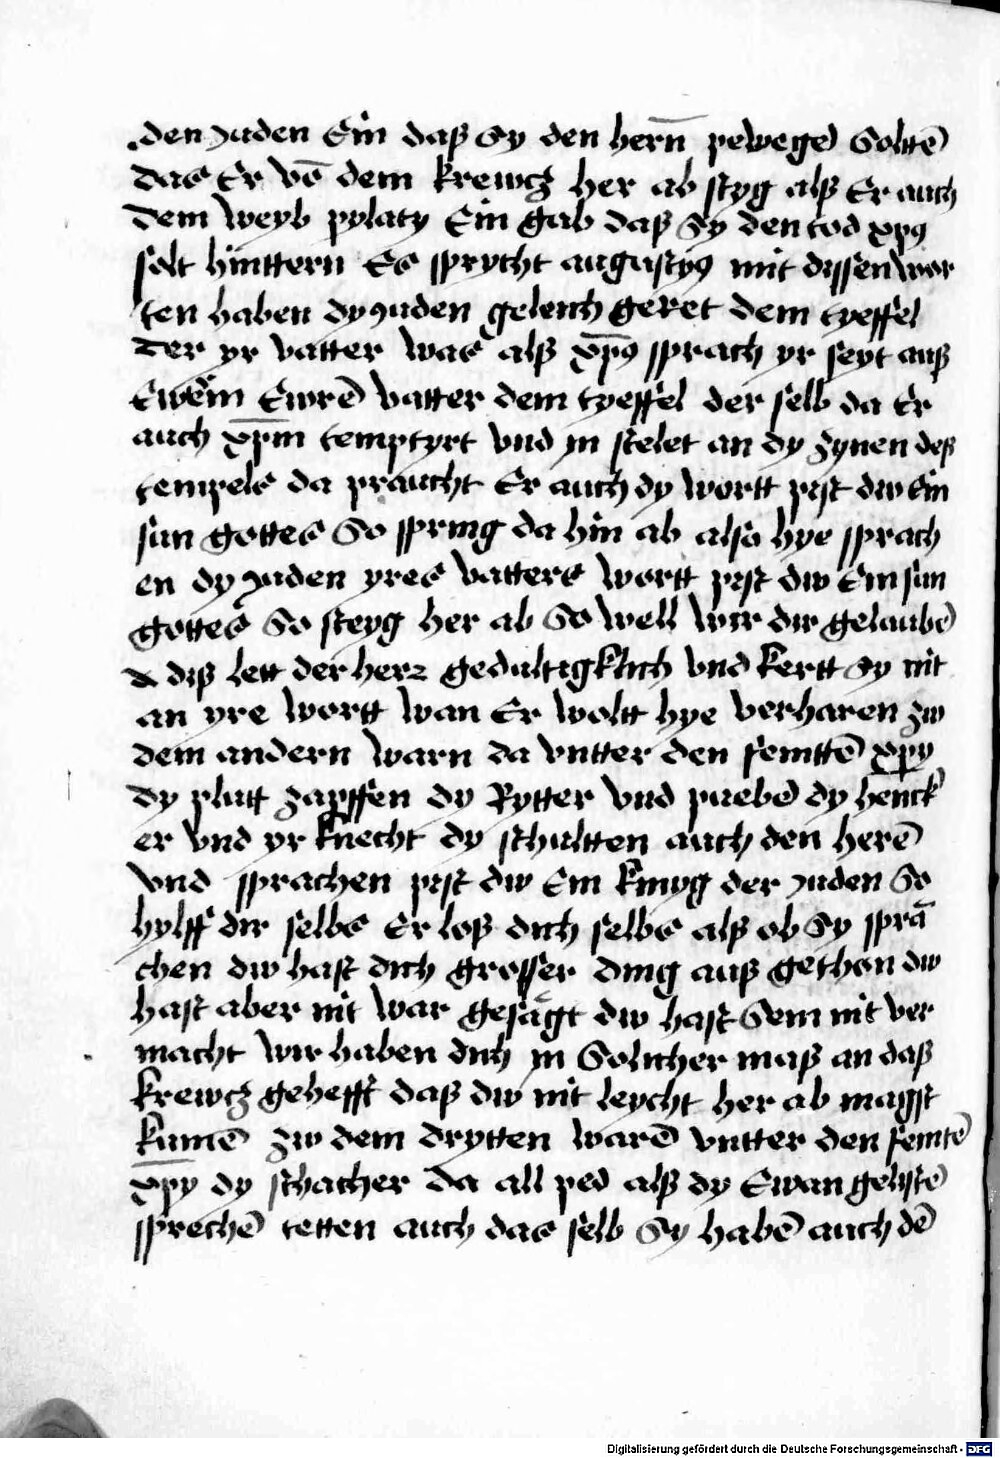 den Juden Ein daß Sy den hern̄ pewegē Soltē
das Er vō dem krewcz her ab styg alß Er auch
dem weyb pylaty Ein gab daß Sy den tod xp̄ꝯ
solt hinttern Es sprycht augustyꝯ mit dyssen wor
ten haben dy Juden geleich geret dem tyeffel
Der yr vatter was alß xp̄ꝯ sprach yr seyt auß
Ewēm Ewrē vatter dem tyeffel der selb da Er
auch xp̄m temptyrt vnd in stelet an dy zynen deß
tempels da praucht Er auch dy wortt pist dw Ein
sun gottes So spring da hin ab also hye sprach
en dy Juden yres vatters wortt pist dw Ein sun
gottes So steyg her ab So well wir dir gelaubē
diß lett der herr gedultigklich vnd kertt Sy nit
an yre wortt wan Er woltt hye verharen zw
dem andern warn da vntter den feintē xp̄y
dy plutt zapffen dy Rytter vnd puebē dy henck
er vnd yr knecht dy schultten auch den herē
vnd sprachen pist dw Ein kinyg der Juden So
hylff dir selbs Er los dich selbs alß ob Sy sprā
chen dw hast dich grosser ding auß gethon dw
hast aber nit war gesagt dw hast Sein nit ver
macht wir haben dich in Solicher maß an daß
krewcz gehefft daß dw nit leycht her ab magst
kumē zw dem drytten warē vntter den feintē
xp̄y dy schacher da all ped alß dy Ewangelystē
sprechē tetten auch das selb Sy habē auch dē
Digitalisierung gefördert durch die Deutsche Forschungsgemeinschaft - DFG